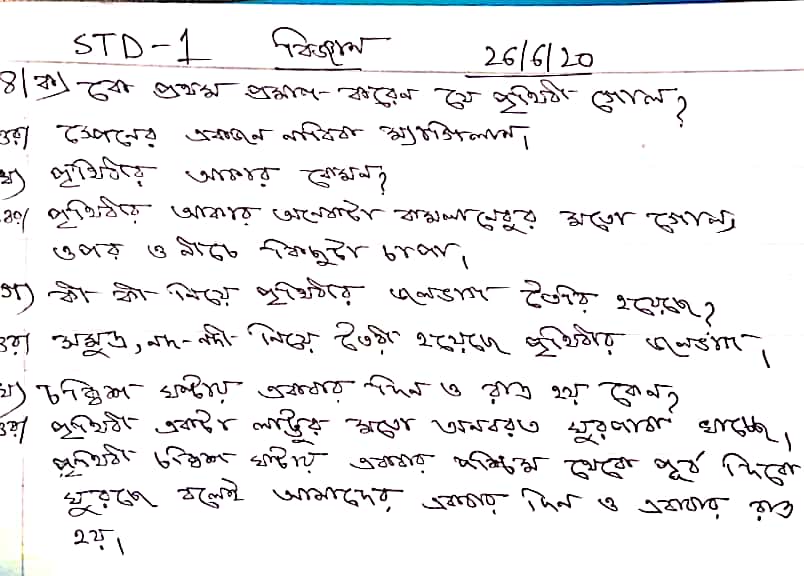 STD-1 বিজ্ঞান 26/6/20
৪| ক) কে প্রথম প্রমাণ করেন যে পৃথিবী গোল?
উঃ| স্পেনের একজন নাবিক ম্যাগিলান।
খ) পৃথিবীর আকার কেমন?
উঃ| পৃথিবীর আকার অনেকটা কমলালেবুর মতো গোল,
ওপর ও নীচে কিছুটা চাপা।
গ) কী কী নিয়ে পৃথিবীর জলভাগ তৈরি হয়েছে?
উঃ| সমুদ্র, নদ-নদী নিয়ে তৈরী হয়েছে পৃথিবীর জলভাগ।
ঘ) চব্বিশ ঘণ্টায় একবার দিন ও রাত হয় কেন?
উঃ| পৃথিবী একটা লাট্টুর মতো অনবরত ঘুরপাক খাচ্ছে।
পৃথিবী চব্বিশ ঘণ্টায় একবার পশ্চিম থেকে পূর্ব দিকে
ঘুরছে বলেই আমাদের একবার দিন ও একবার রাত
হয়।